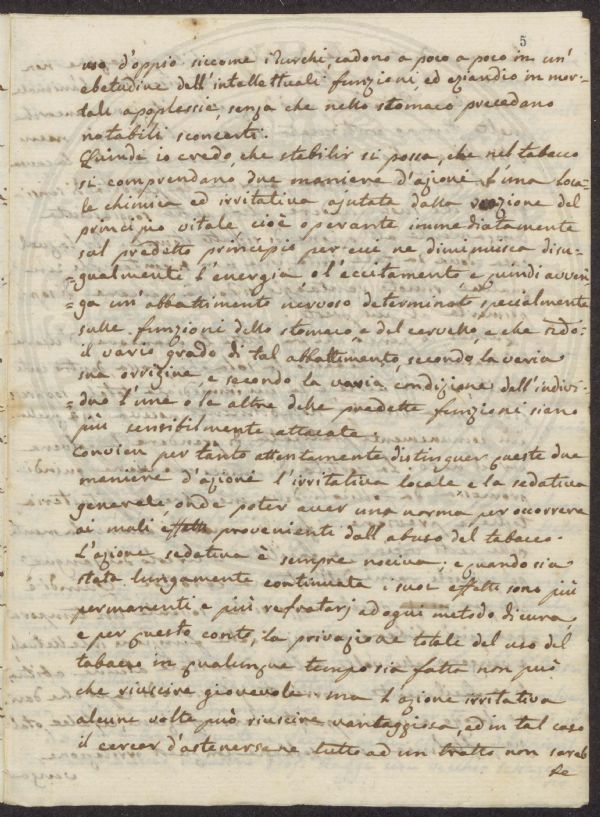 5
uso d'oppio siccome i Turchi, cadono a poco a poco in un'
ebetudine dell'intellettuali funzioni, ed eziandio in mor-
tali apoplessie, senza che nello stomaco precedano
notabili sconcerti.
Quindi io credo, che stabilir si possa, che nel tabacco
si comprendano due maniere d'azioni. L'una loca-
le chimica ed irritativa ajutata dalla reazione del
principio vitale, cioè operante immediatamente
sul predetto principio per cui ne diminuisca disu-
=gualmente l'energia o l'eccitamento e quindi avven-
=ga un'abbattimento nervoso determinato specialmente
sulle funzioni dello stomaco e del cervello, e che sedò-
il vario grado di tal abbattimento, secondo la varia
sua orrigine, e secondo la varia condizione dell'indivi-
=duo l'une o le altre delle predette funzioni siano
più sensibilmente attacate.
Convien per tanto attentamente distinguer queste due
maniere d'azioni l'irritativa locale e la sedativa
generale onde poter aver una norma per occorrere
ai mali effetti provenienti dall'abuso del tabacco.
L'azione sedativa è sempre nociva; e quando sia
stata lungamente continuata i suoi effetti sono più
permanenti e più refratarj ad ogni metodo di cura,
e per questo conto, la privazione totale del uso del
tabacco in qualunque tempo sia fatta non può
che riuscire giovevole. ma l'azione irritativa
alcune volte può riuscire vantaggiosa, ed in tal caso
il cercar d'astenersene tutto ad un tratto non sareb
be